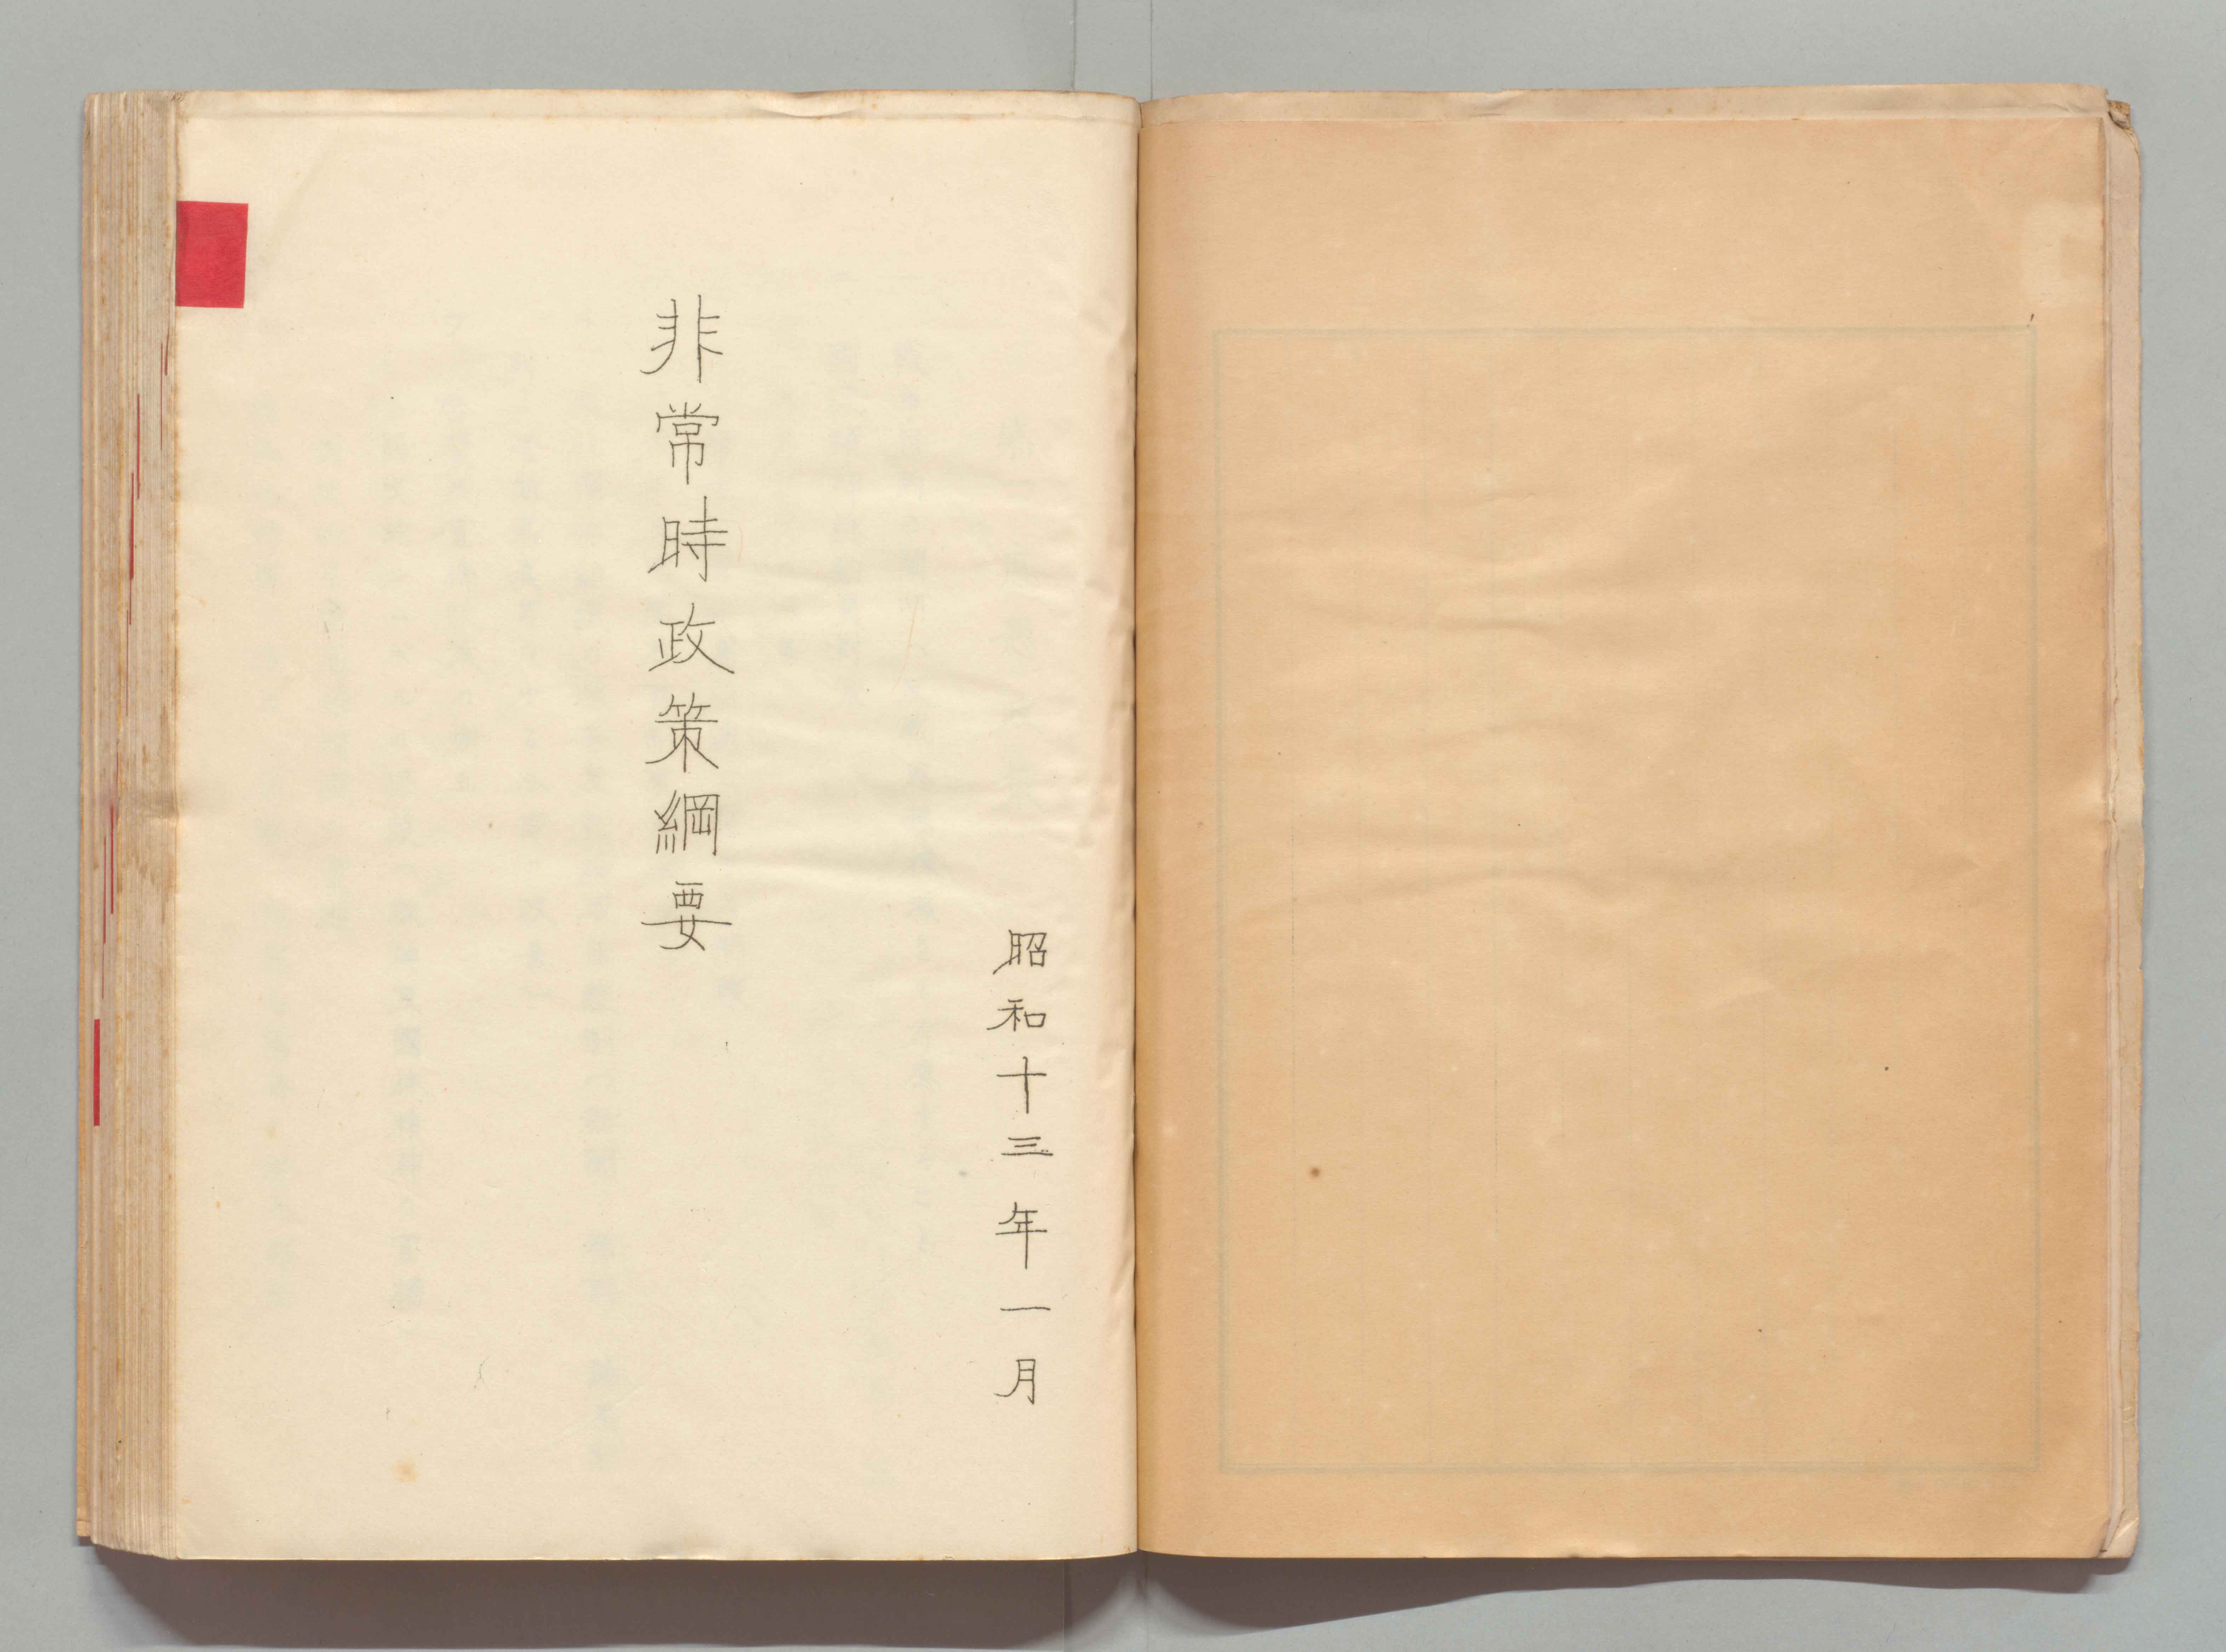 昭和十三年一月
非常時政策綱要